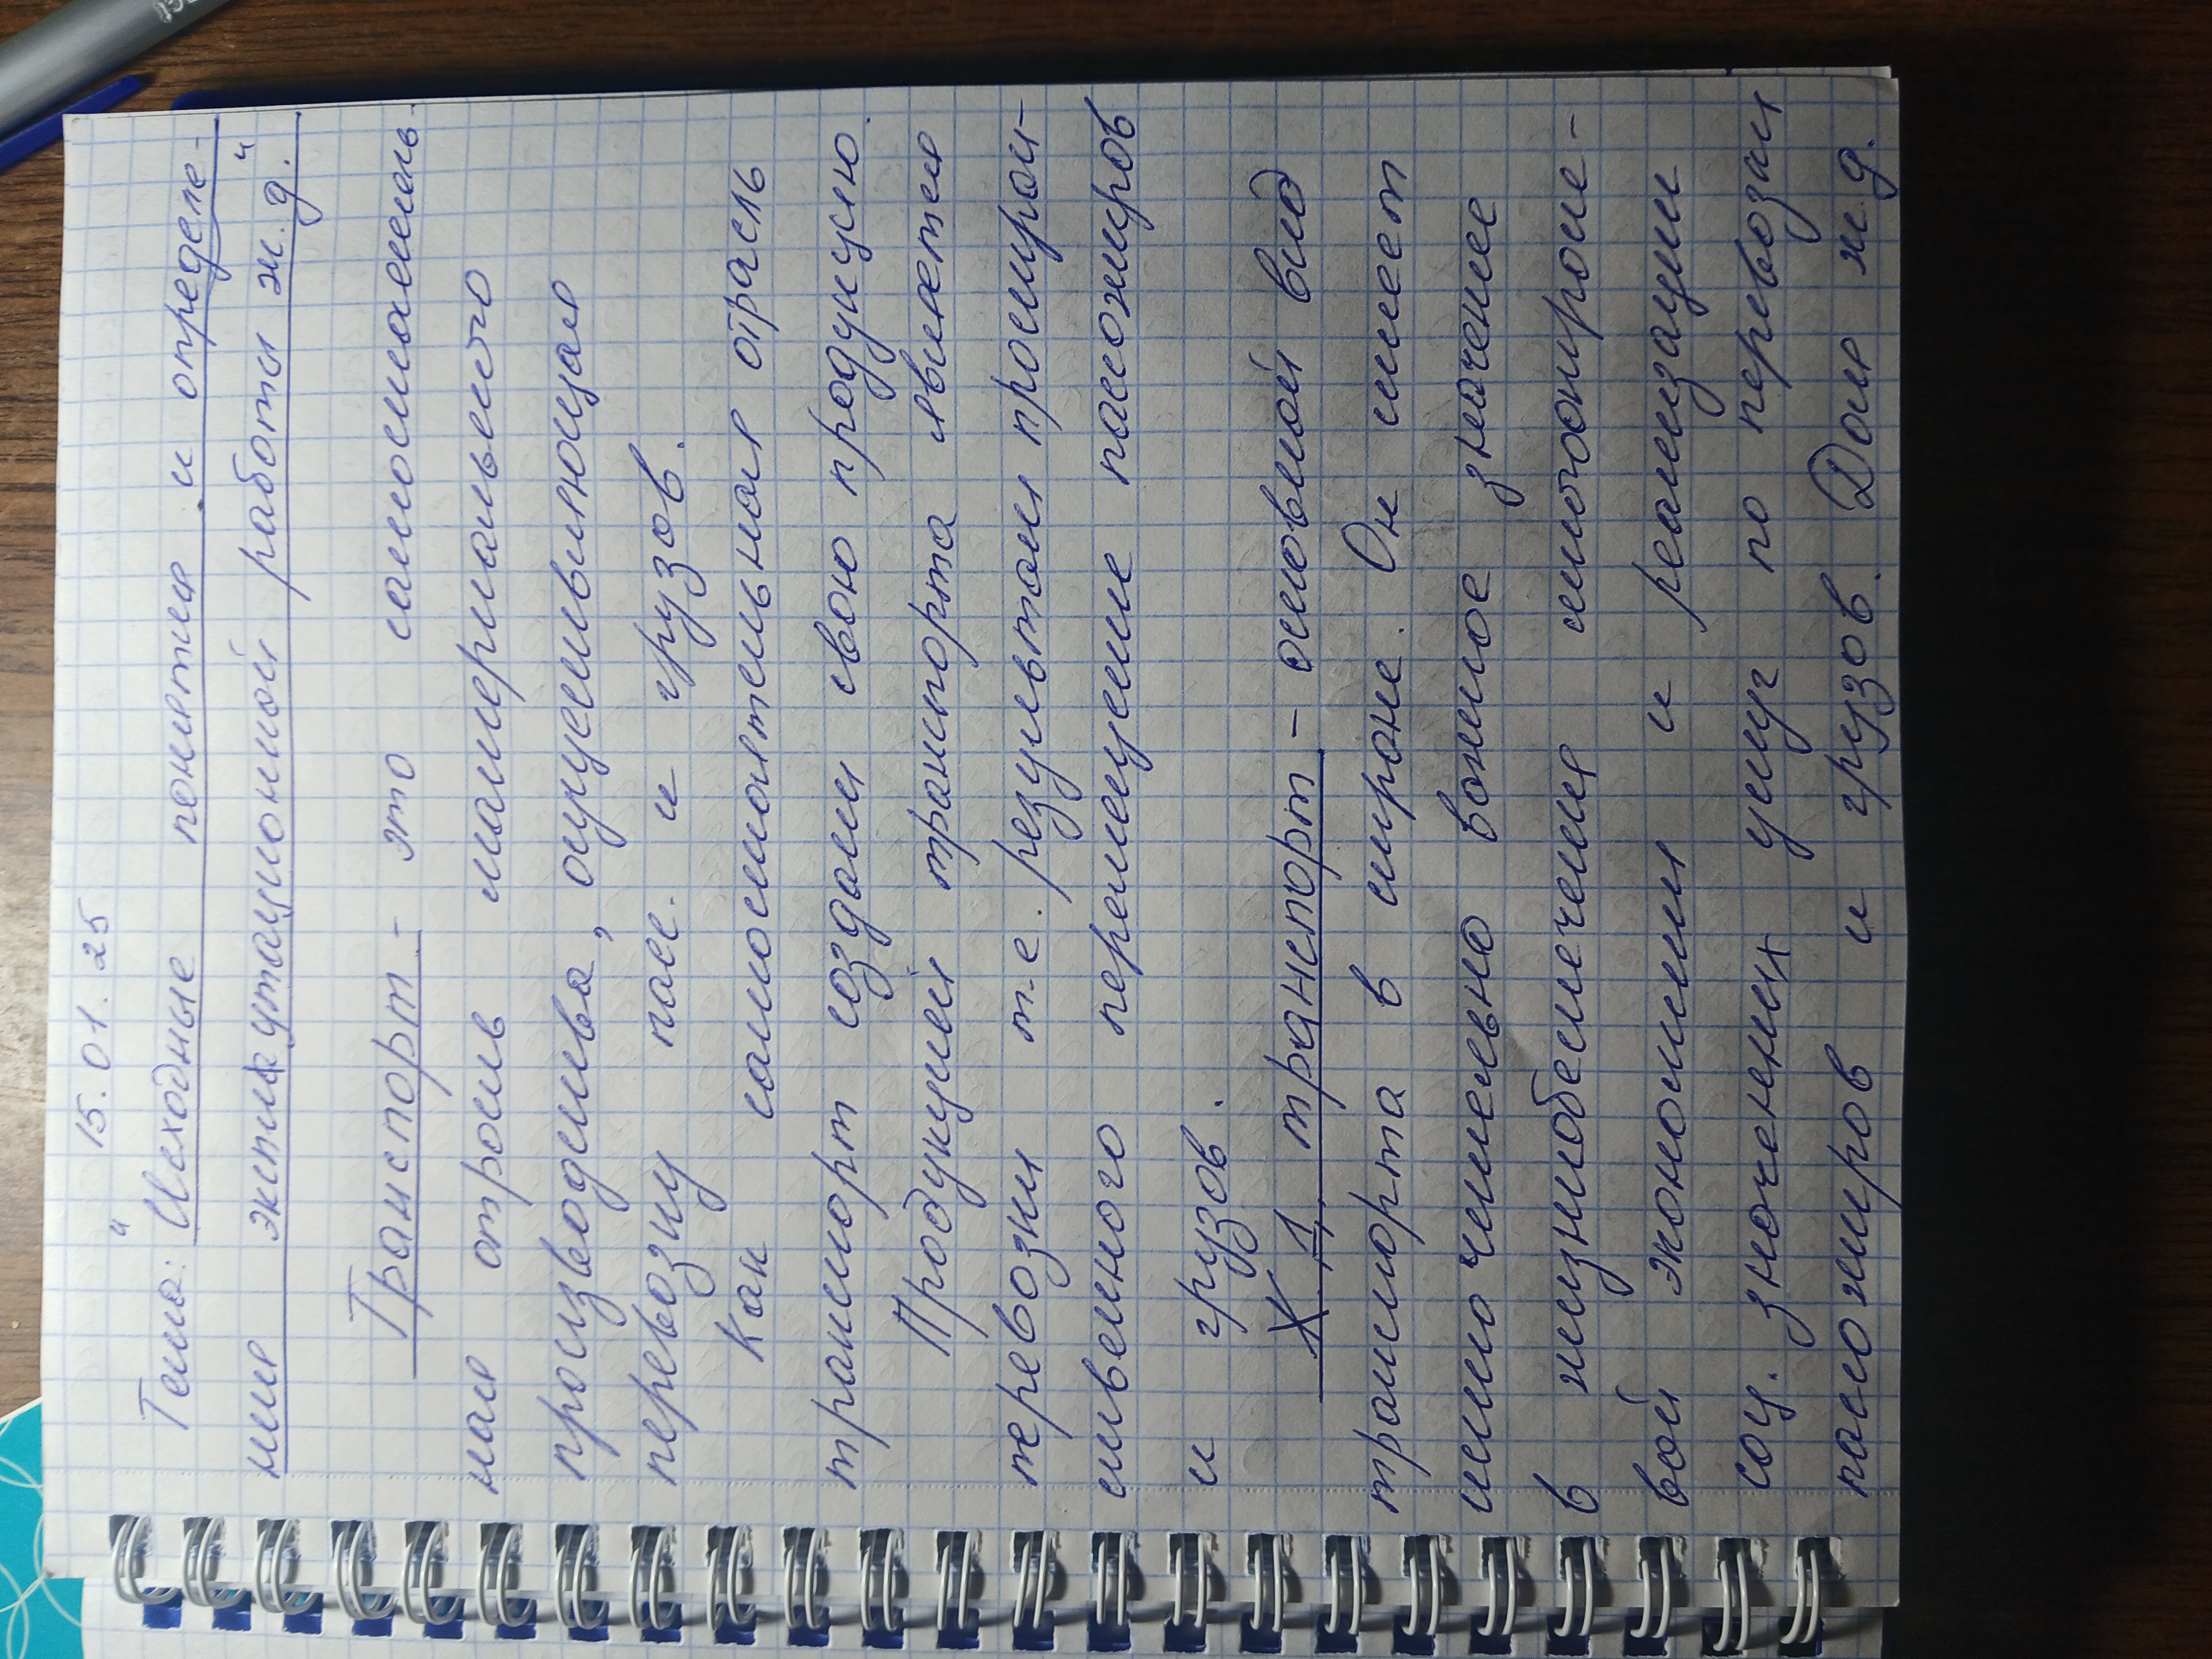 15.01.25
Тема: "Исходные понятия и определе-
ния эксплуатационной работы ж.д."
Транспорт - это самостоятель-
ная отрасль материального
производства, осуществляющая
перевозку пасс. и грузов.
Как самостоятельная отрасль
транспорт создаёт свою продукцию.
Продукцией транспорта является
перевозки т.е. результат простран-
ственного перемещение пассажиров
и грузов.
ЖД транспорт - основной вид
транспорта в стране. Он имеет
исключительно важное значение
в жизнеобеспечения многоотрасле-
вой экономики и реализации
соц. значения услуг по перевозки
пассажиров и грузов. Доля ж.д.